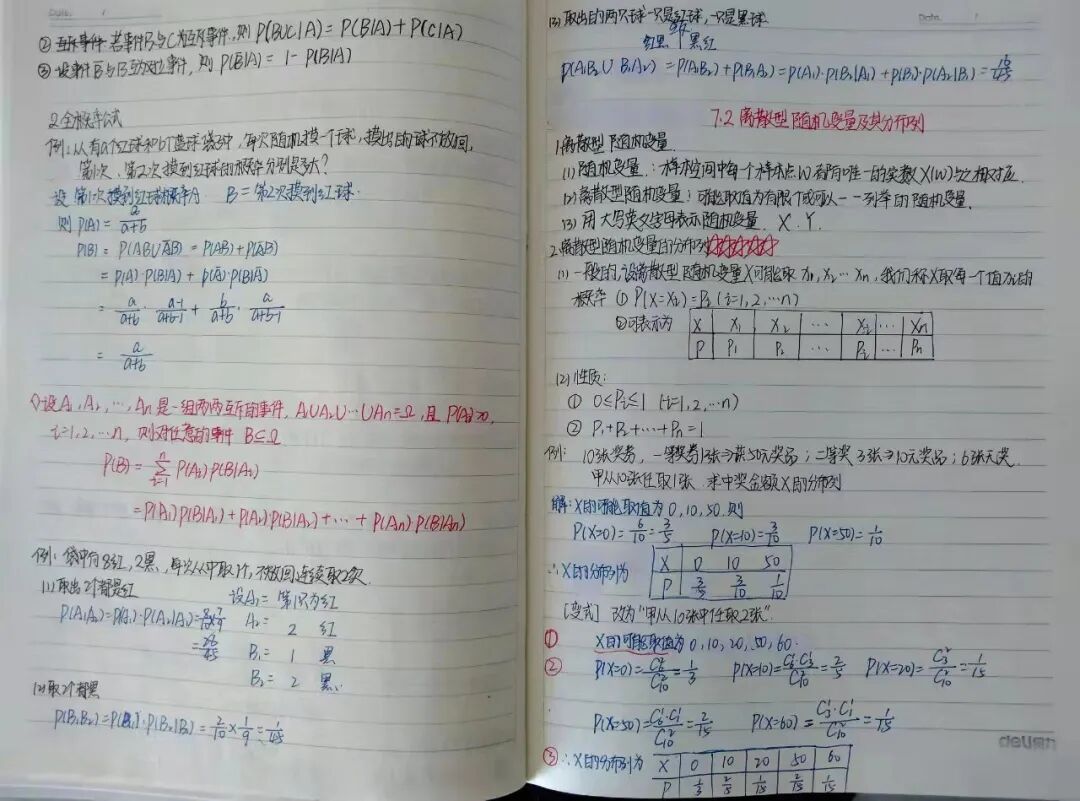 Date. /
② 互斥事件 若事件B与C为互斥事件,则 P(B∪C|A) = P(B|A) + P(C|A)
③ 设事件B与B̄互为对立事件, 则 P(B̄|A) = 1 - P(B|A)
2.全概率公式
例: 从有a个红球和b个蓝球袋中, 每次随机摸一个球, 摸出的球不放回,
第1次、第2次摸到红球的概率分别是多大?
设 第1次摸到红球概率A B = 第2次摸到红球.
则 P(A) = a/(a+b)
P(B) = P(AB∪ĀB) = P(AB) + P(ĀB)
= P(A)·P(B|A) + P(Ā)·P(B|Ā)
= a/(a+b) · (a-1)/(a+b-1) + b/(a+b) · a/(a+b-1)
= a/(a+b)
设A₁, A₂, …, Aₙ是一组两两互斥的事件, A₁∪A₂∪…∪Aₙ=Ω, 且 P(Aᵢ)>0,
i=1,2,…n, 则对任意的事件 B⊆Ω
P(B) = ∑ⁿᵢ₌₁ P(Aᵢ)P(B|Aᵢ)
= P(A₁)P(B|A₁) + P(A₂)P(B|A₂) + … + P(Aₙ)P(B|Aₙ)
例: 袋中有8红, 2黑, 每次从中取1个, 不放回连续取2次.
(1) 取出2个都是红 设A₁ = 第1次为红
P(A₁A₂)=P(A₁)·P(A₂|A₁)=8/10×7/9 A₂ = 2 红
=28/45 B₁ = 1 黑
B₂ = 2 黑.
(2) 取2个都黑
P(B₁B₂)=P(B₁)·P(B₂|B₁)=2/10×1/9=1/45
(3) 取出的两只球一只是红球, 一只是黑球
Date. /
红黑 黑红
P(A₁B₂∪B₁A₂) = P(A₁B₂) + P(B₁A₂) = P(A₁)·P(B₂|A₁) + P(B₁)·P(A₂|B₁) = 16/45
7.2 离散型随机变量及其分布列
1.离散型 随机变量.
(1) 随机变量: 一样本空间中每个样本点W都有唯一的实数X(W)与之相对应.
(2) 离散型随机变量: 可能取值为有限个或可以一一列举的随机变量.
(3) 用大写英文字母表示随机变量. X. Y.
2.离散型随机变量的分布列☆☆☆☆☆
(1) 一般的, 设离散型随机变量X可能取 x₁, x₂ … xₙ, 我们称X取每一个值xᵢ的
概率 ① P(X=Xᵢ)=Pᵢ (i=1,2,…n)
②可表示为 X X₁ X₂ … Xᵢ … Xₙ
P P₁ P₂ … Pᵢ … Pₙ
(2) 性质:
① 0≤Pᵢ≤1 (i=1,2,…n)
② P₁+P₂+…+Pₙ=1
例: 10张奖券, 一等奖券1张⇒获50元奖品; 二等奖3张⇒10元奖品; 6张无奖.
甲从10张任取1张. 求中奖金额X的分布列
解: X的可能取值为 0, 10, 50. 则
P(X=0)=6/10=3/5 P(X=10)=3/10 P(X=50)=1/10
∴X的分布列为 X 0 10 50
P 3/5 3/10 1/10
[变式] 改为"甲从10张中任取2张".
① X的可能取值为 0, 10, 20, 50, 60.
② P(X=0)=C₆²/C₁₀²=1/3 P(X=10)=C₆¹C₃¹/C₁₀²=2/5 P(X=20)=C₃²/C₁₀²=1/15
P(X=50)=C₆¹·C₁¹/C₁₀²=2/15 P(X=60)=C₃¹·C₁¹/C₁₀²=1/15
delien
③ ∴X的分布列为 X 0 10 20 50 60
P 1/3 2/5 1/15 2/15 1/15